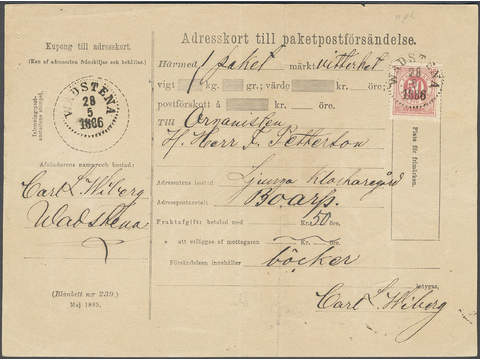 Kupong till adresskort.
(Kan af adressaten frånskiljas och behållas.)
WADSTENA
28
5
1886
Afsändarens namn och bostad:
Carl L Wiberg
Wadstena
(Blankett nr 239.)
Maj 1885.
Adresskort till paketpostförsändelse.
Härmed 1 paket märkt vitterhet
vigt kg. gr.; värde kr. öre.
postförskott å kr. öre.
Till Organisten
H. Herr F. Petterson
Adressatens bostad: Ljunga Klockaregård
Adresspostanstalt: Boarp.
Fraktafgift: betalad med Kr. 50 öre.
» att utläggas af mottagaren Kr. öre.
Försändelsen innehåller böcker
betygas,
Carl L Wiberg
WADSTENA
28
5
1886
Plats för frimärken.